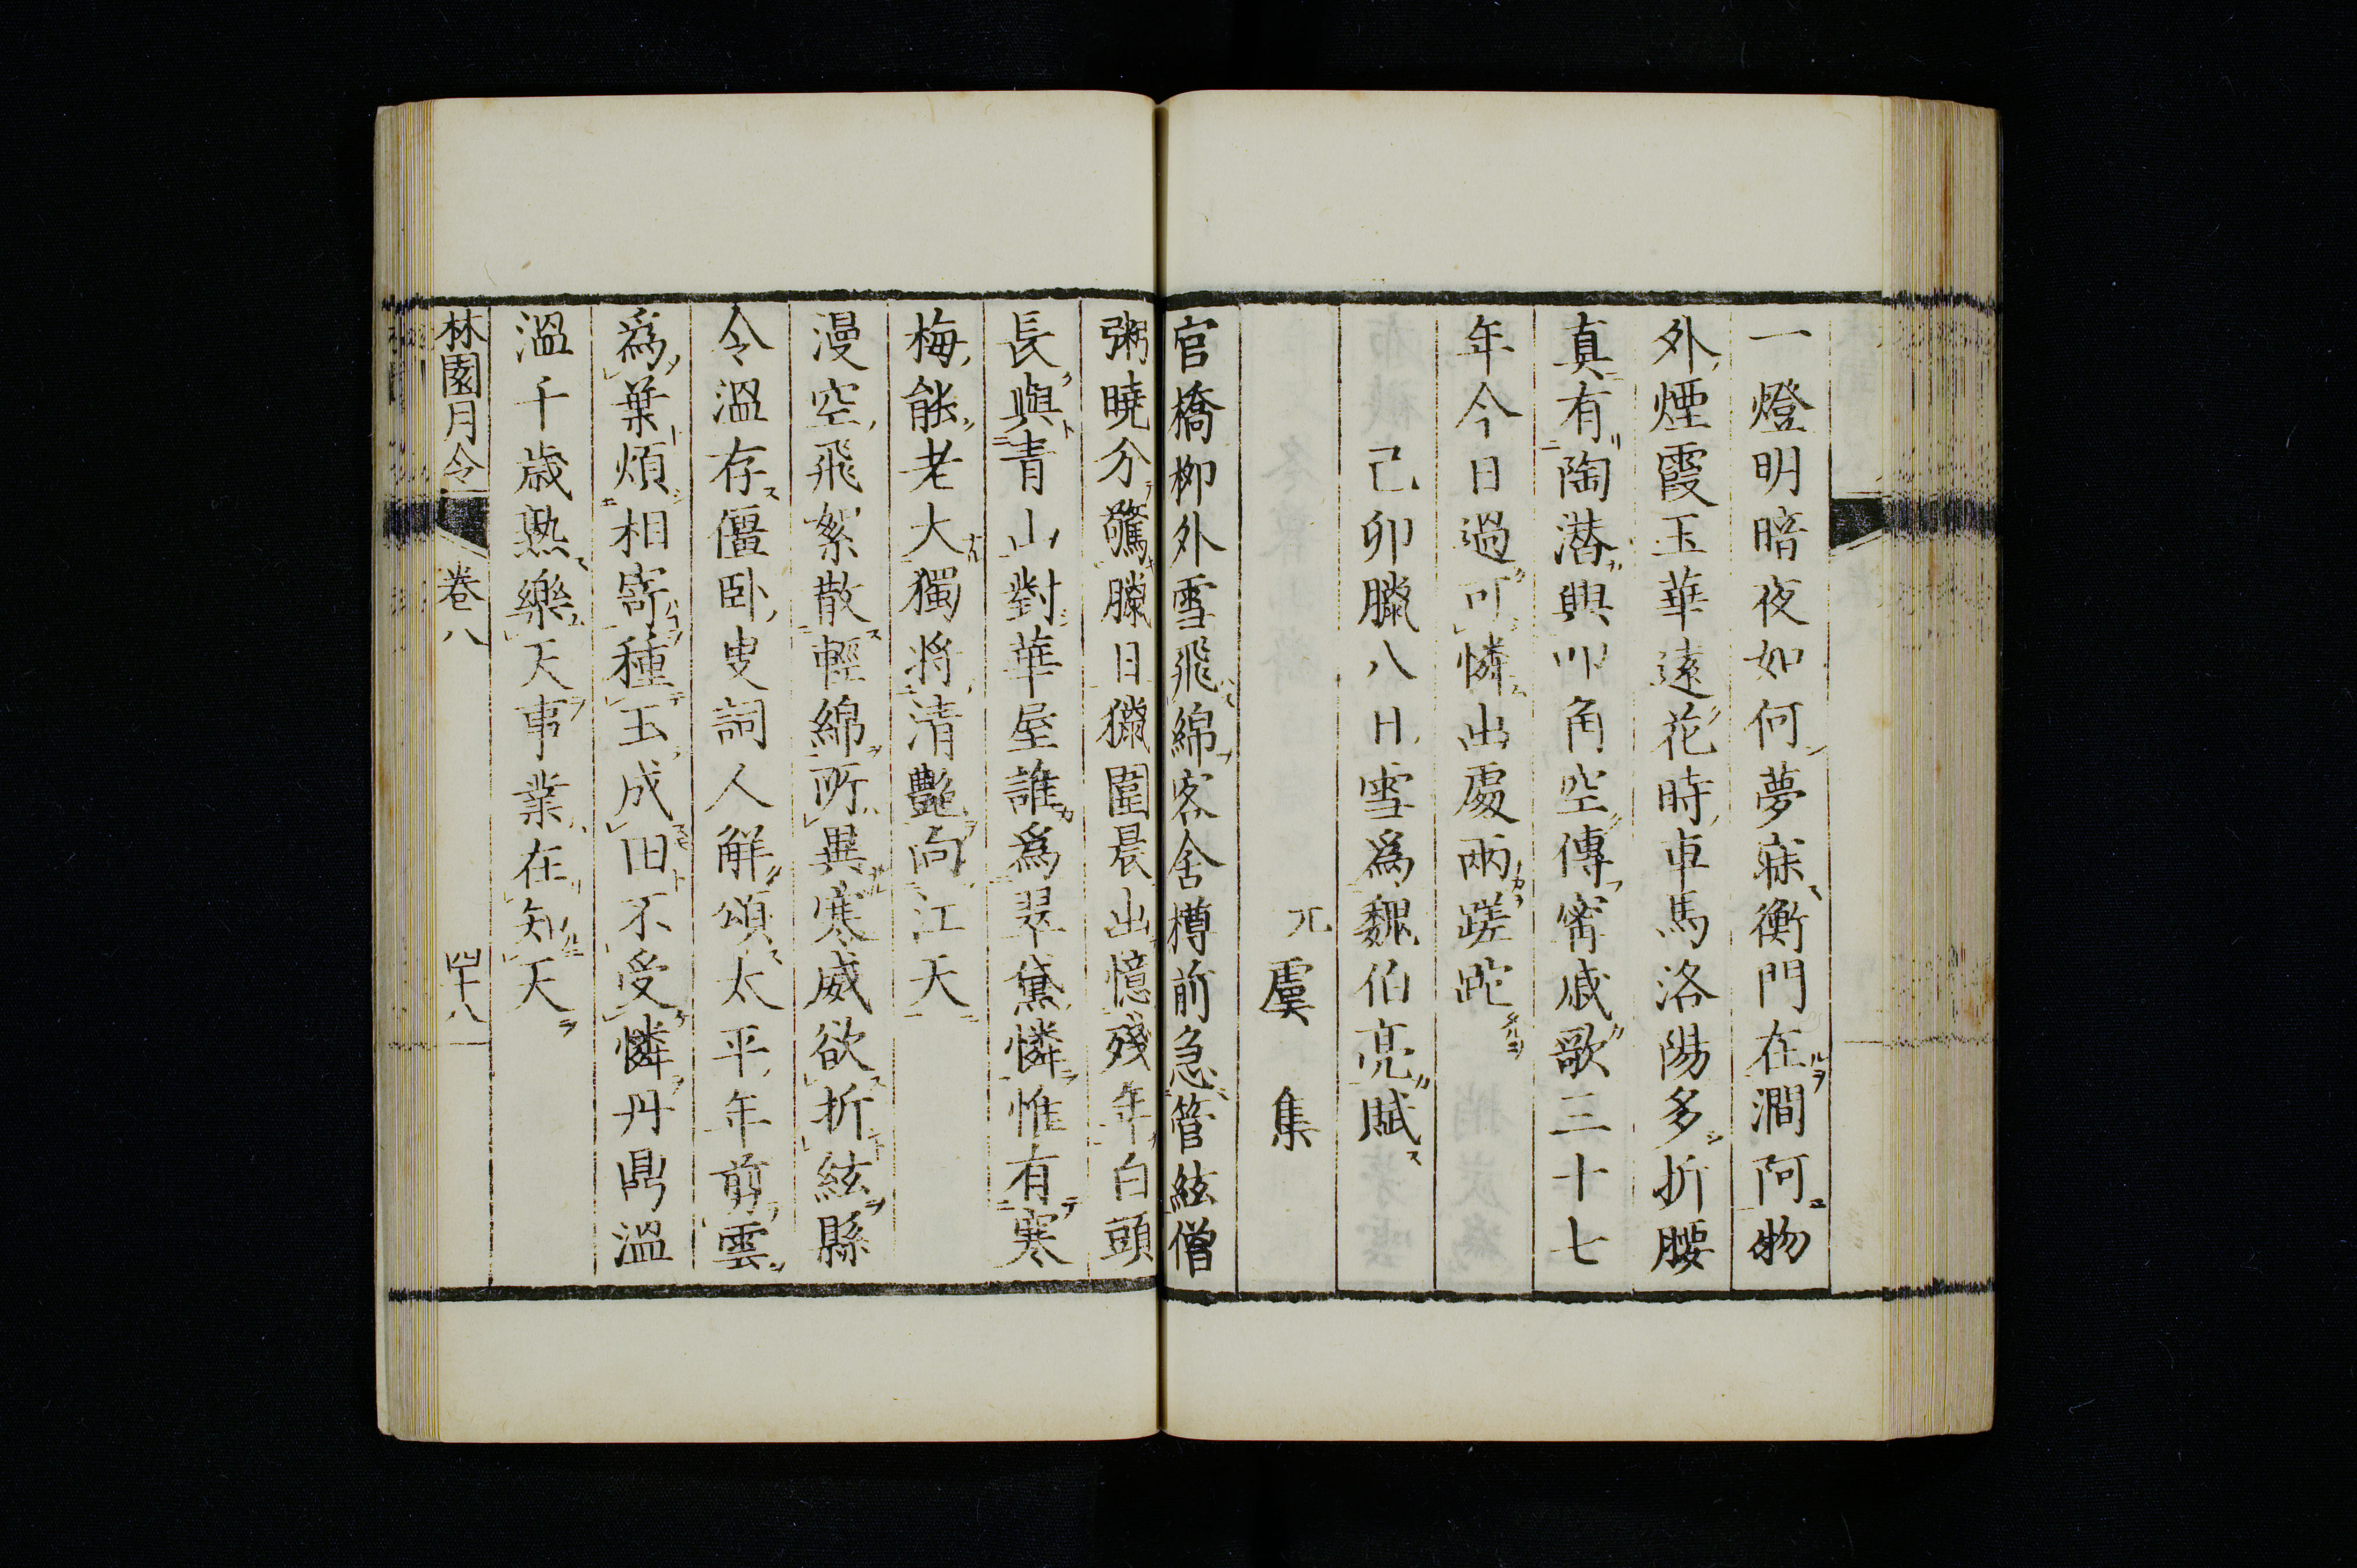 一燈明暗夜如何夢寐衡門在澗阿物
外煙霞玉華遠花時車馬洛陽多折腰
真有陶潜興叩角空傳甯戚歌三十七
年今日過可憐出處兩蹉跎
己卯臘八日雪為魏伯亮賦
元 虞集
官橋柳外雪飛綿客舍樽前急管絃僧
粥曉分驚臘日獵圍晨出憶殘年白頭
長與青山對華屋誰為翠黛憐惟有寒
梅能老大獨將清艷向江天
漫空飛絮散輕綿所異寒威欲折絃縣
令溫存僵臥叟詞人解頌太平年剪雲
為葉煩相寄種玉成田不受憐丹鼎溫
溫千歲熟樂天事業在知天
林園月令 卷八 四十八